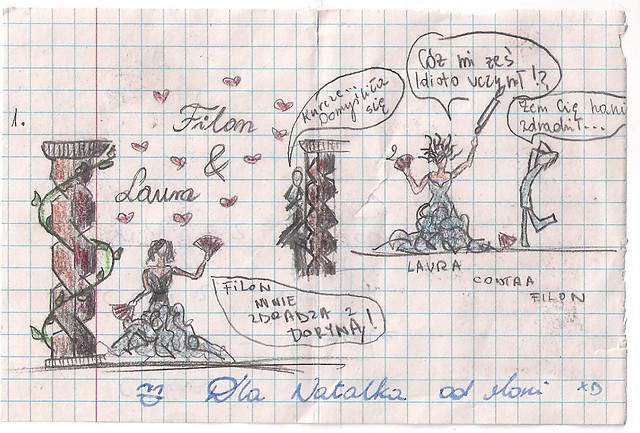 1.
Filon
&
Laura
Kurcze...
Domyśliła
się
FILON
MNIE
ZDRADZA Z
DORYNĄ!
2
Cóż mi żeś
Idioto uczynił!?
Żem Cię hani
zdradził...
LAURA
CONTRA
FILON
Dla Natalka od Moni xD